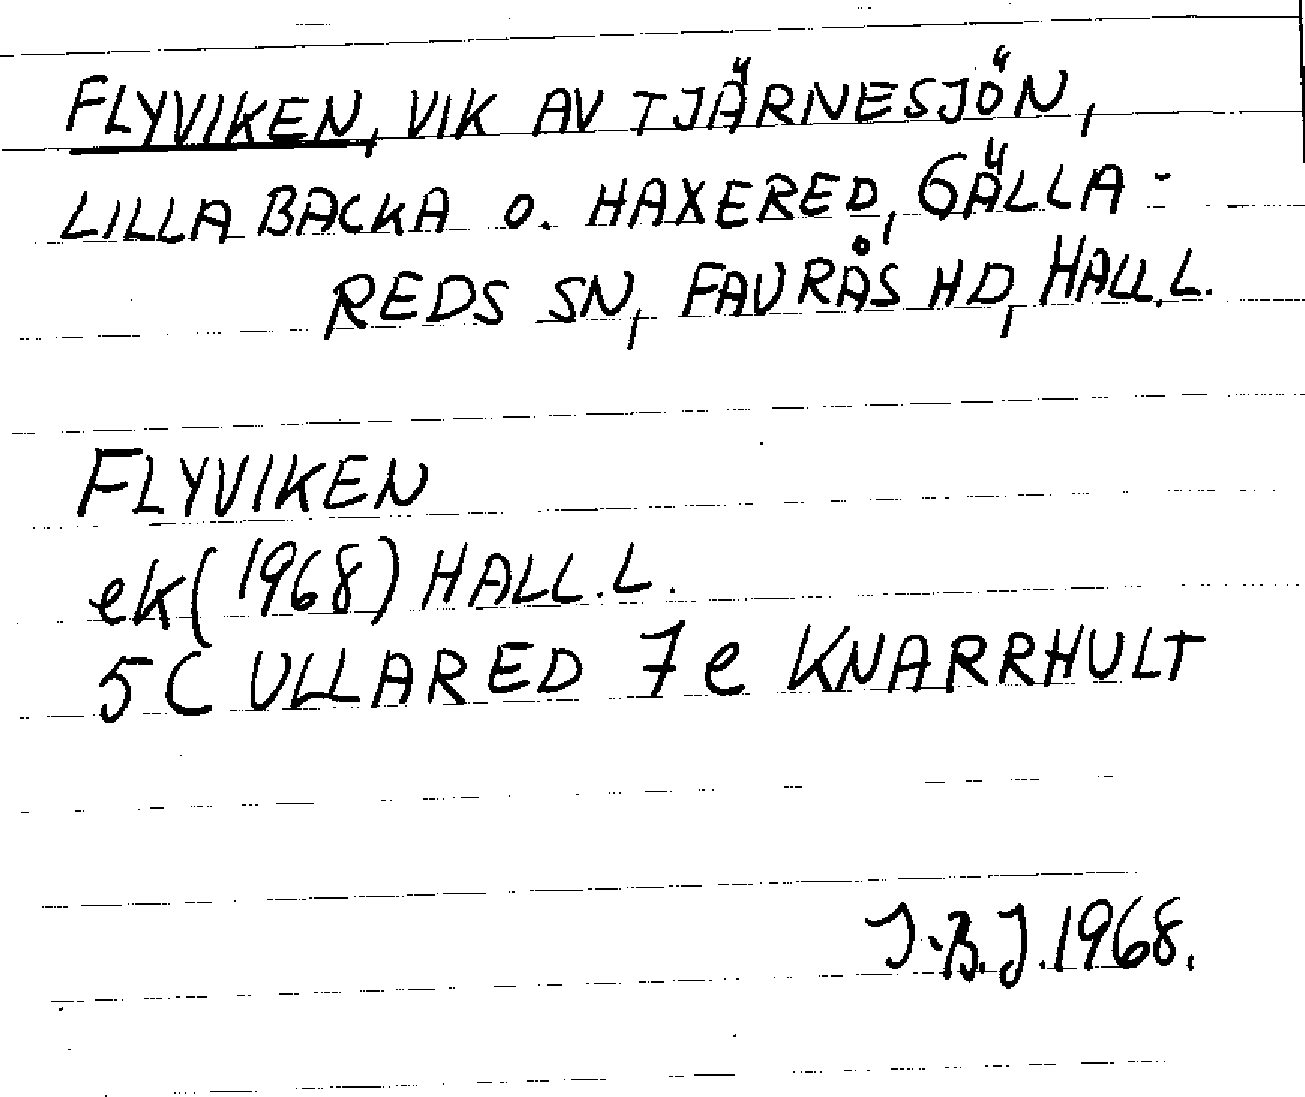 FLYVIKEN, VIK AV TJÄRNESJÖN,
LILLA BACKA o. HAXERED, GÄLLA-
REDS SN, FAURÅS HD, HALL.L.
FLYVIKEN
ek(1968) HALL.L.
5C ULLARED 7e KNARRHULT
J.B.J. 1968.